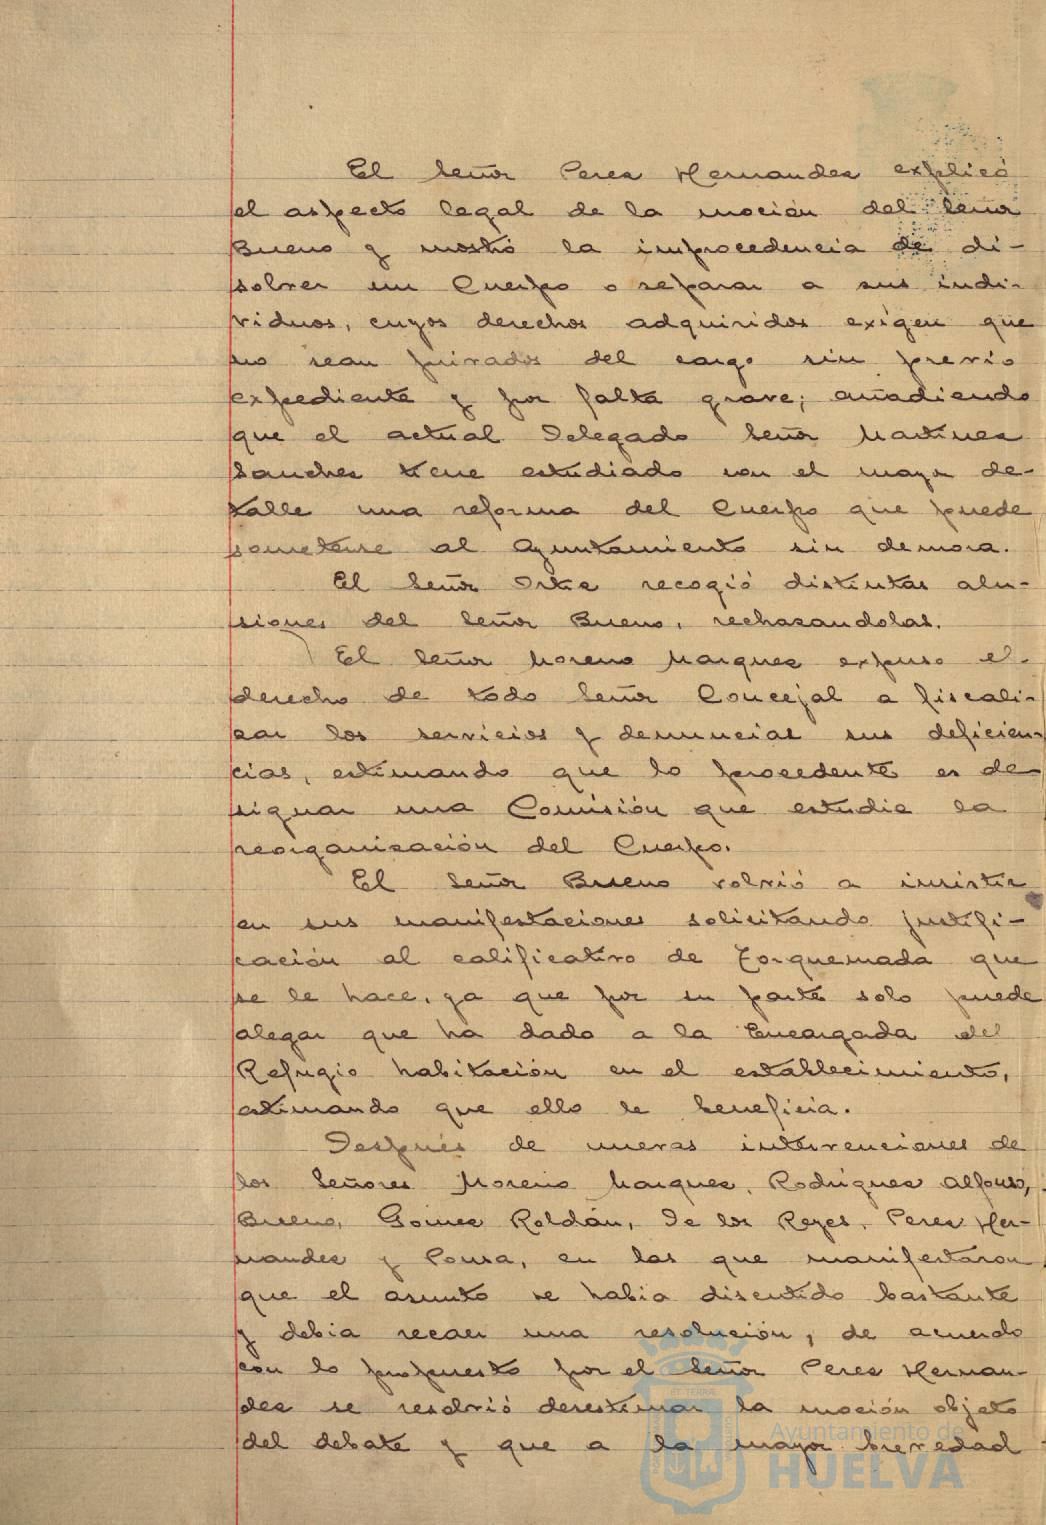 El Señor Perez Hernandez explicó
el aspecto legal de la moción del Señor
Bueno y mostró la improcedencia de di-
solver un Cuerpo o separar a sus indi-
viduos, cuyos derechos adquiridos exigen que
no sean privados del cargo sin previo
expediente y por falta grave; añadiendo
que el actual Delegado Señor Martinez
Sanchez tiene estudiado con el mayor de-
talle una reforma del Cuerpo que puede
someterse al Ayuntamiento sin demora.
El Señor Ortiz recogió distintas alu-
siones del Señor Bueno, rechazandolas.
El Señor Moreno Marquez expuso el
derecho de todo Señor Concejal a fiscali-
zar los servicios y denunciar sus deficien-
cias, estimando que lo procedente es de-
signar una Comisión que estudie la
reorganización del Cuerpo.
El Señor Bueno volvió a insistir
en sus manifestaciones solicitando justifi-
cación al calificativo de Torquemada que
se le hace, ya que por su parte solo puede
alegar que ha dado a la Encargada del
Refugio habitación en el establecimiento,
estimando que ello le beneficia.
Después de nuevas intervenciones de
los Señores Moreno Marquez, Rodriguez Alfonso,
Bueno, Gomez Roldán, De los Reyes, Perez Her-
nandez y Ponza, en las que manifestaron
que el asunto se habia discutido bastante
y debia recaer una resolución, de acuerdo
con lo propuesto por el Señor Perez Hernan-
dez se resolvió desestimar la moción objeto
del debate y que a la mayor brevedad
Ayuntamiento de
HUELVA